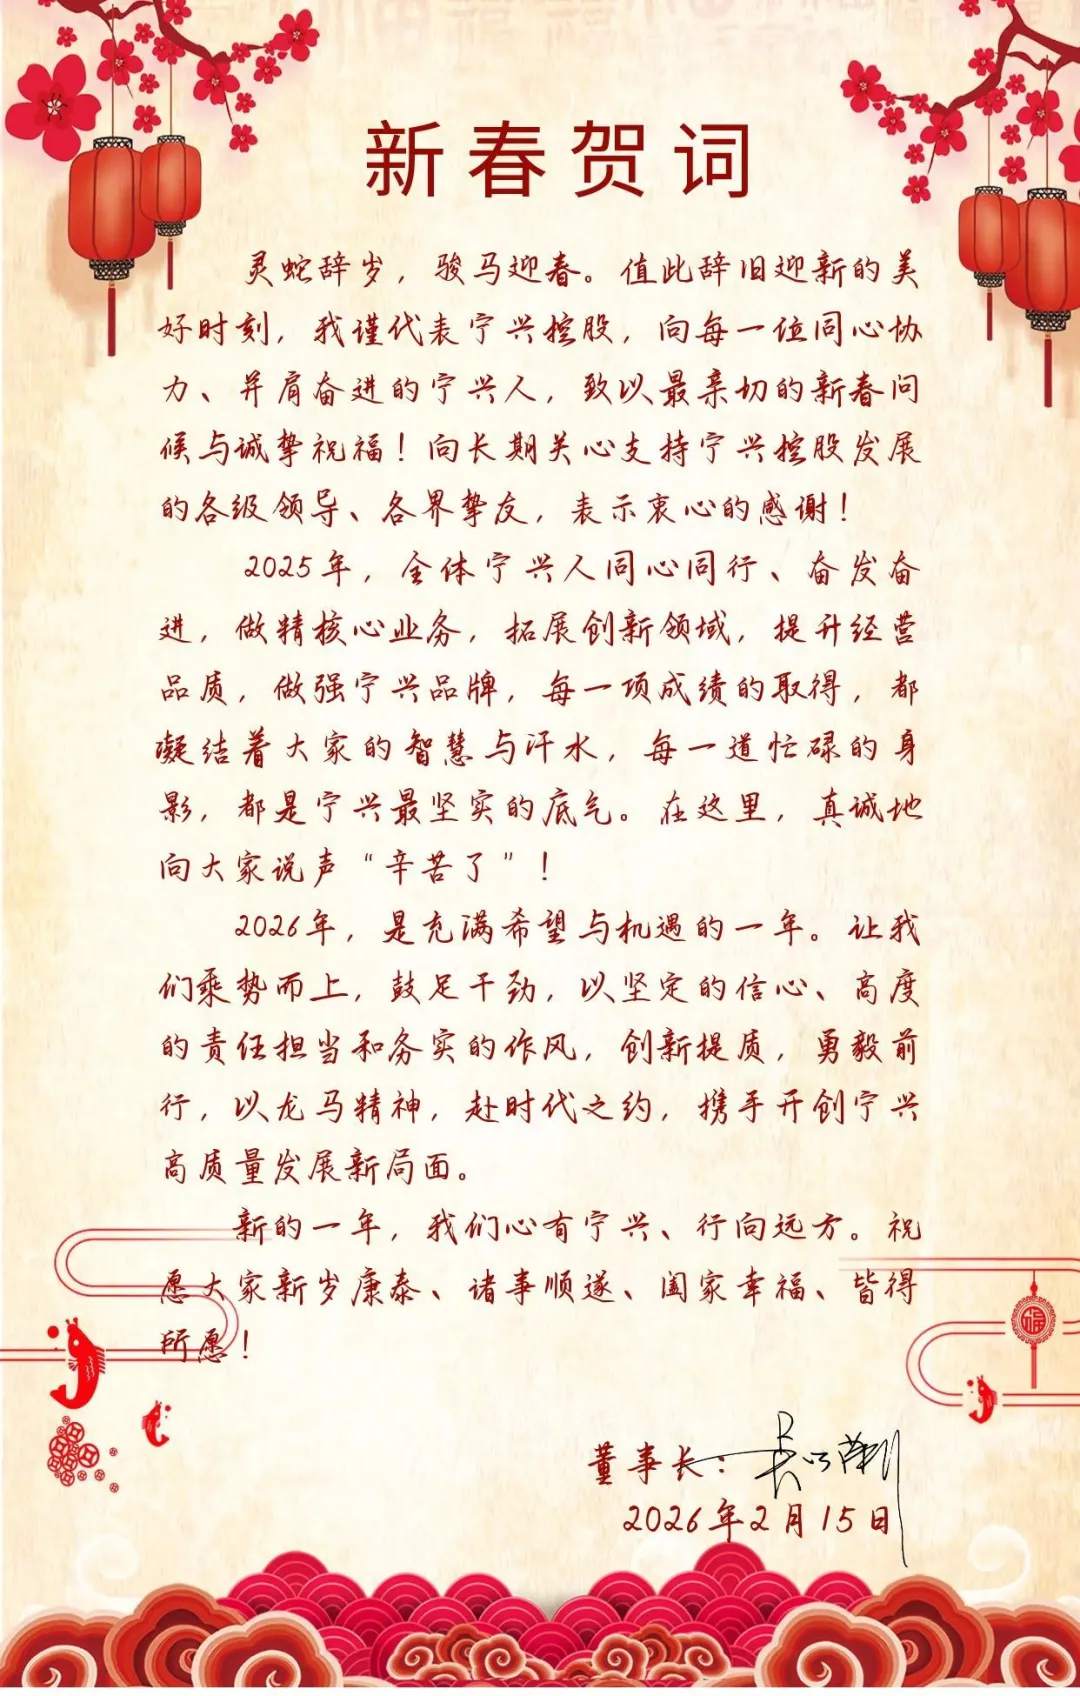 新春贺词
灵蛇辞岁，骏马迎春。值此辞旧迎新的美
好时刻，我谨代表宁兴控股，向每一位同心协
力、并肩奋进的宁兴人，致以最亲切的新春问
候与诚挚祝福！向长期关心支持宁兴控股发展
的各级领导、各界挚友，表示衷心的感谢！
2025年，全体宁兴人同心同行、奋发奋
进，做精核心业务，拓展创新领域，提升经营
品质，做强宁兴品牌，每一项成绩的取得，都
凝结着大家的智慧与汗水，每一道忙碌的身
影，都是宁兴最坚实的底气。在这里，真诚地
向大家说声“辛苦了”！
2026年，是充满希望与机遇的一年。让我
们乘势而上，鼓足干劲，以坚定的信心、高度
的责任担当和务实的作风，创新提质，勇毅前
行，以龙马精神，赴时代之约，携手开创宁兴
高质量发展新局面。
新的一年，我们心有宁兴、行向远方。祝
愿大家新岁康泰、诸事顺遂、阖家幸福、皆得
所愿！
董事长：
2026年2月15日
福